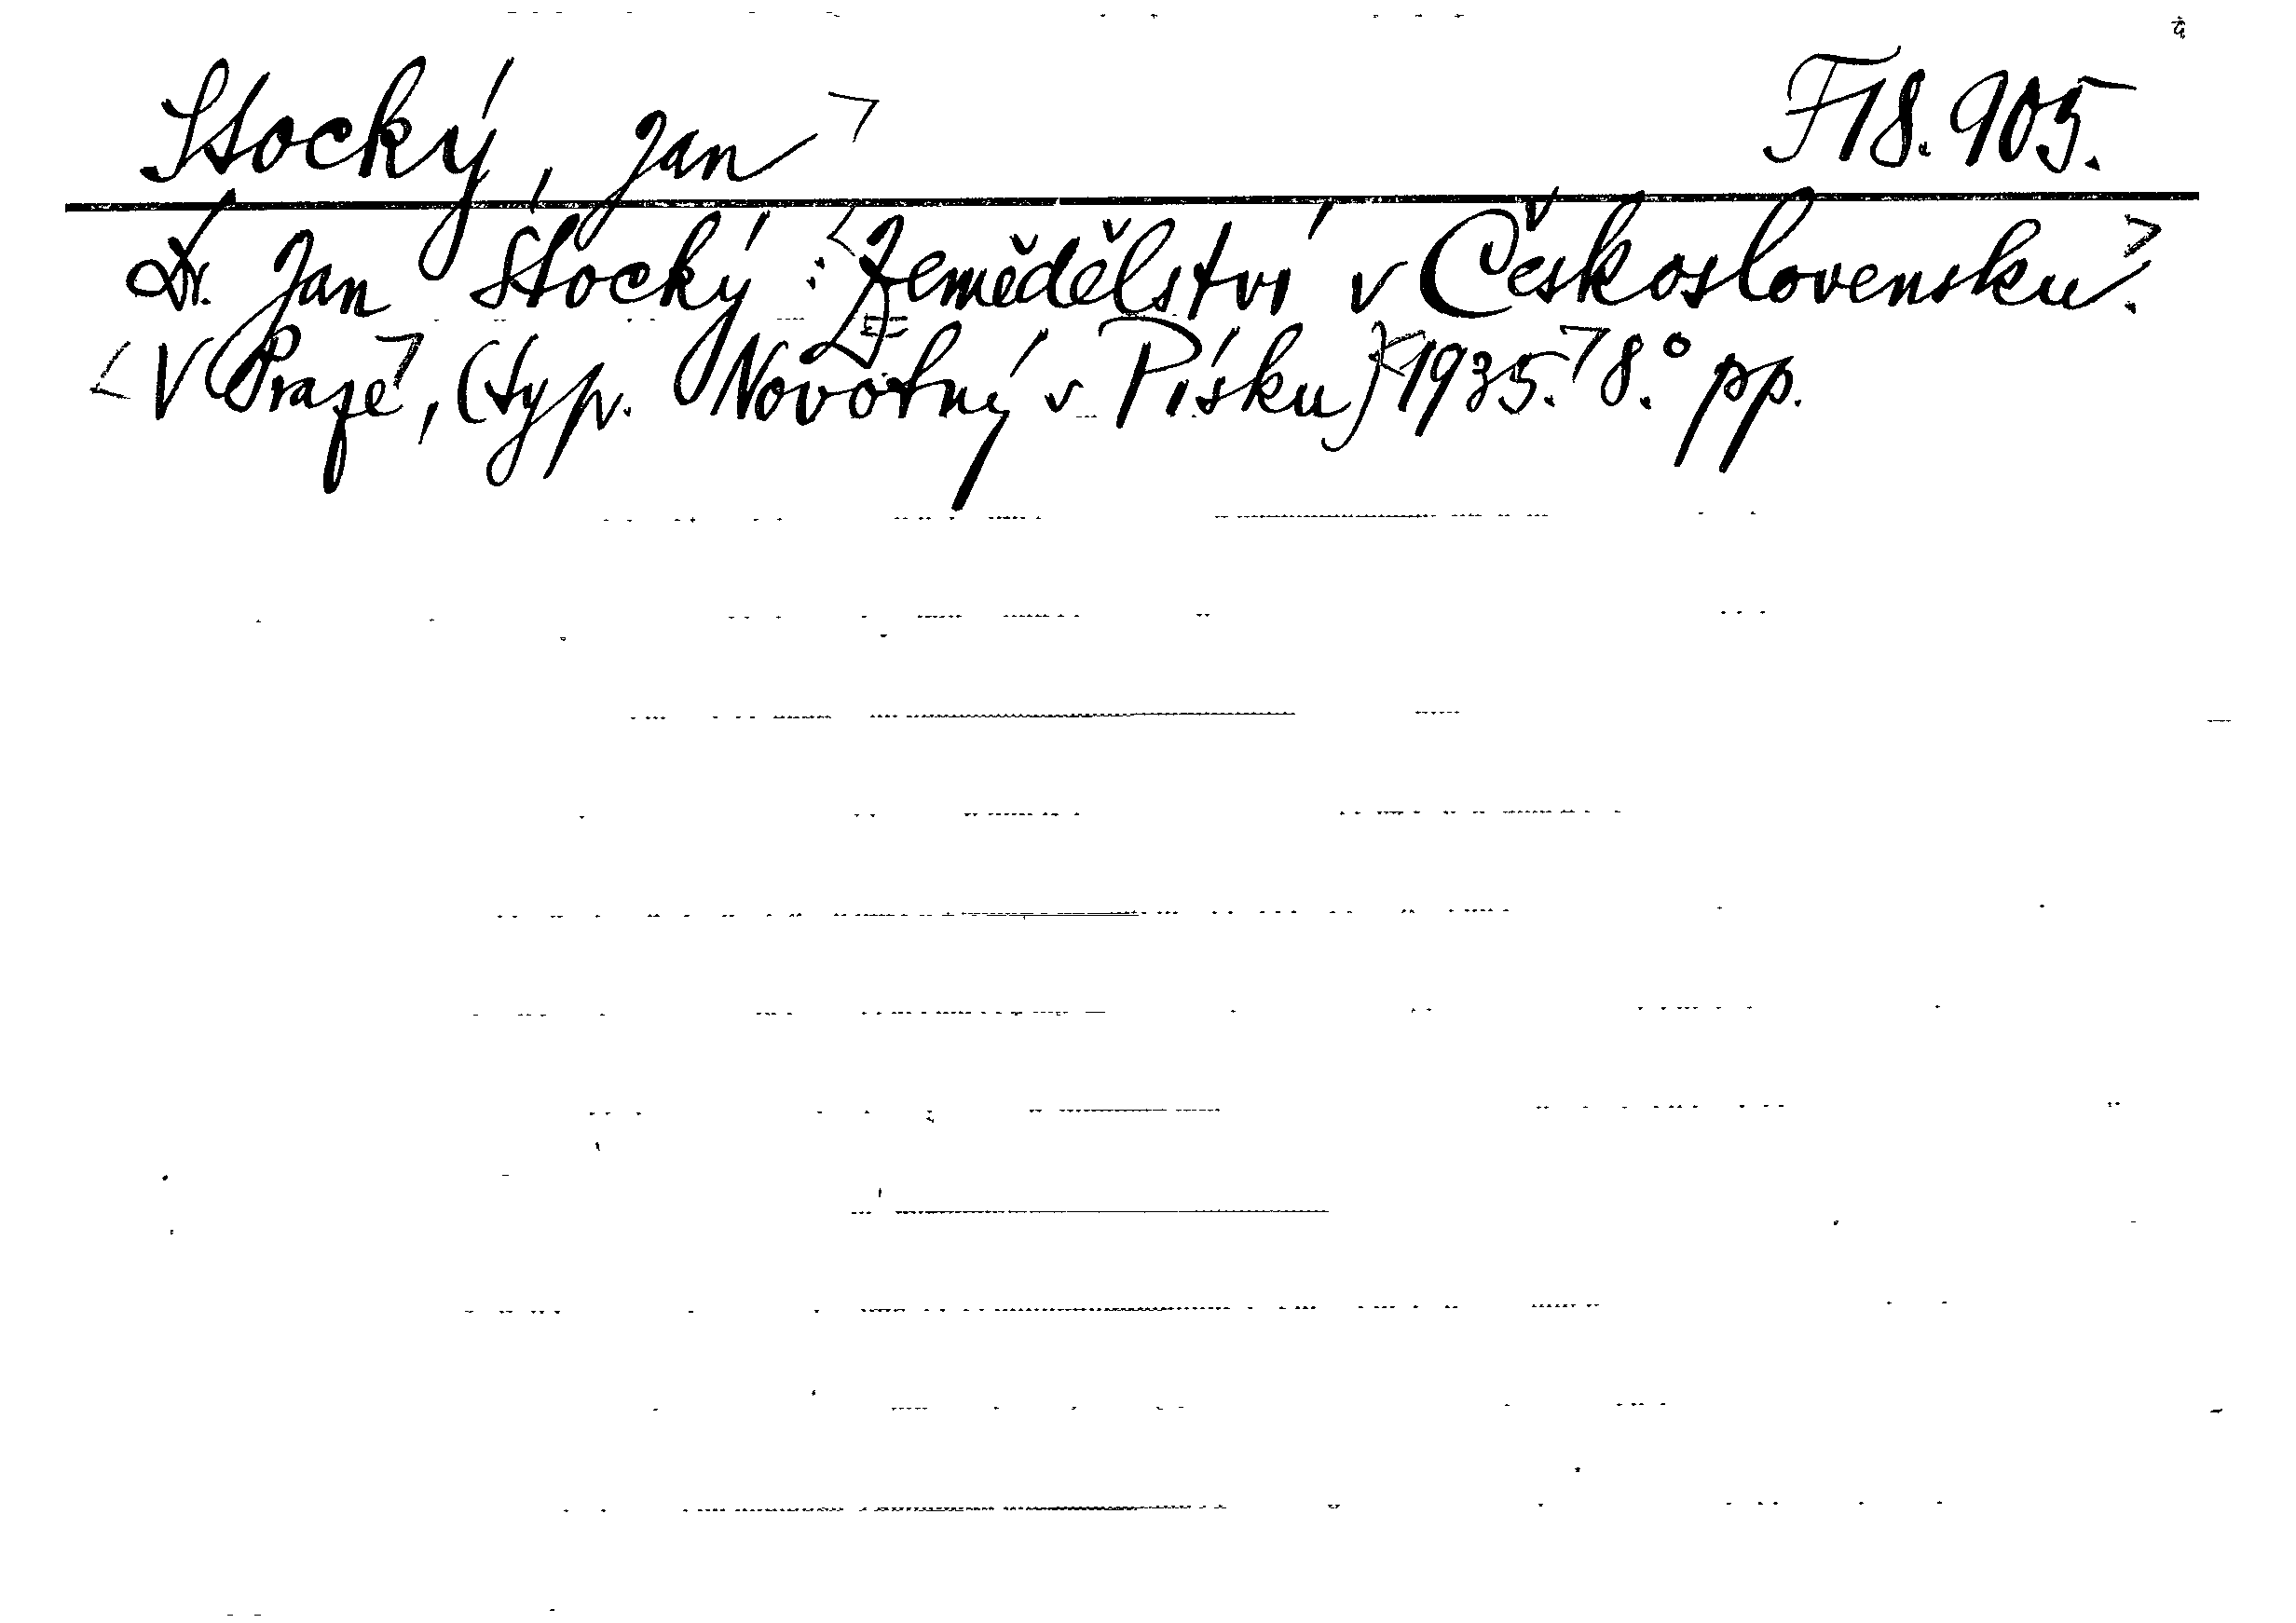 Stocký, Jan F 18.905.
Dr. Jan Stocký: Zemědělství v Československu.
V Praze, (typ. Novotný v Písku) 1935. 8.° pp.